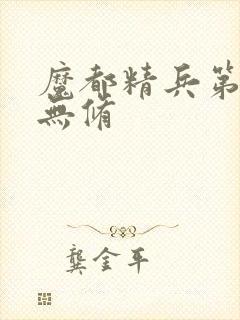 魔都精兵第
無脩
龔金平